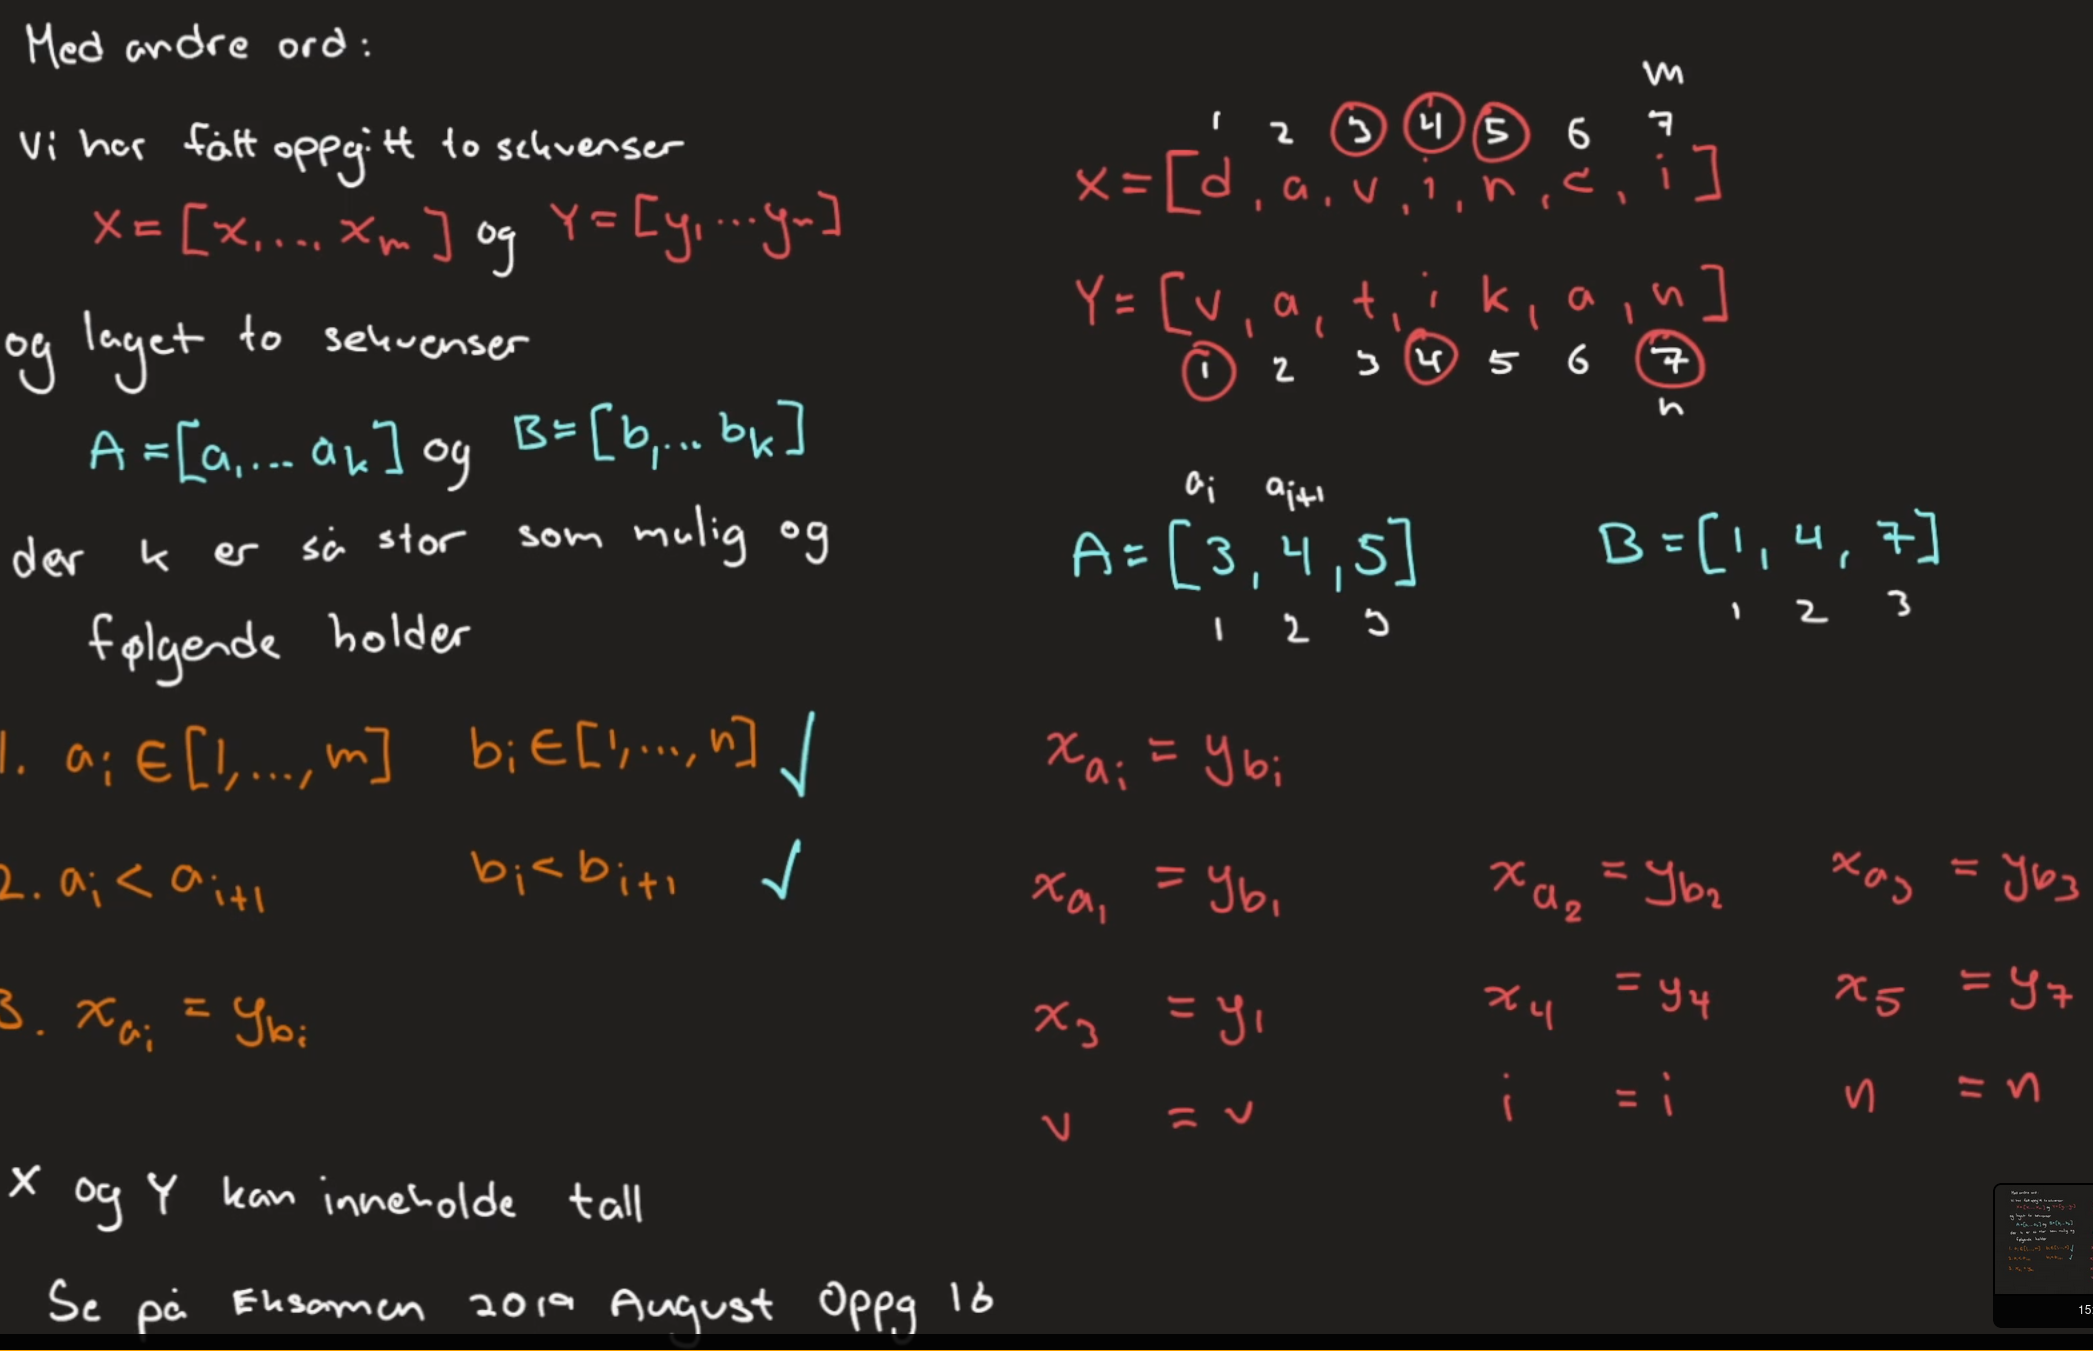 Med andre ord:
Vi har fått oppgitt to sekvenser
X = [x₁ ... xₘ] og Y = [y₁ ... yₙ]
og laget to sekvenser
A = [a₁ ... aₖ] og B = [b₁ ... bₖ]
der k er så stor som mulig og
følgende holder
1. aᵢ ∈ [1, ..., m] bᵢ ∈ [1, ..., n] ✓
2. aᵢ < aᵢ₊₁ bᵢ < bᵢ₊₁ ✓
3. x_{aᵢ} = y_{bᵢ}
X og Y kan inneholde tall
Se på Eksamen 2019 August Oppg 16
m
1 2 3 4 5 6 7
X = [d, a, v, i, n, c, i]
Y = [v, a, t, i, k, a, n]
1 2 3 4 5 6 7
n
aᵢ aᵢ₊₁
A = [3, 4, 5] B = [1, 4, 7]
1 2 3 1 2 3
x_{aᵢ} = y_{bᵢ}
x_{a₁} = y_{b₁} x_{a₂} = y_{b₂} x_{a₃} = y_{b₃}
x₃ = y₁ x₄ = y₄ x₅ = y₇
v = v i = i n = n